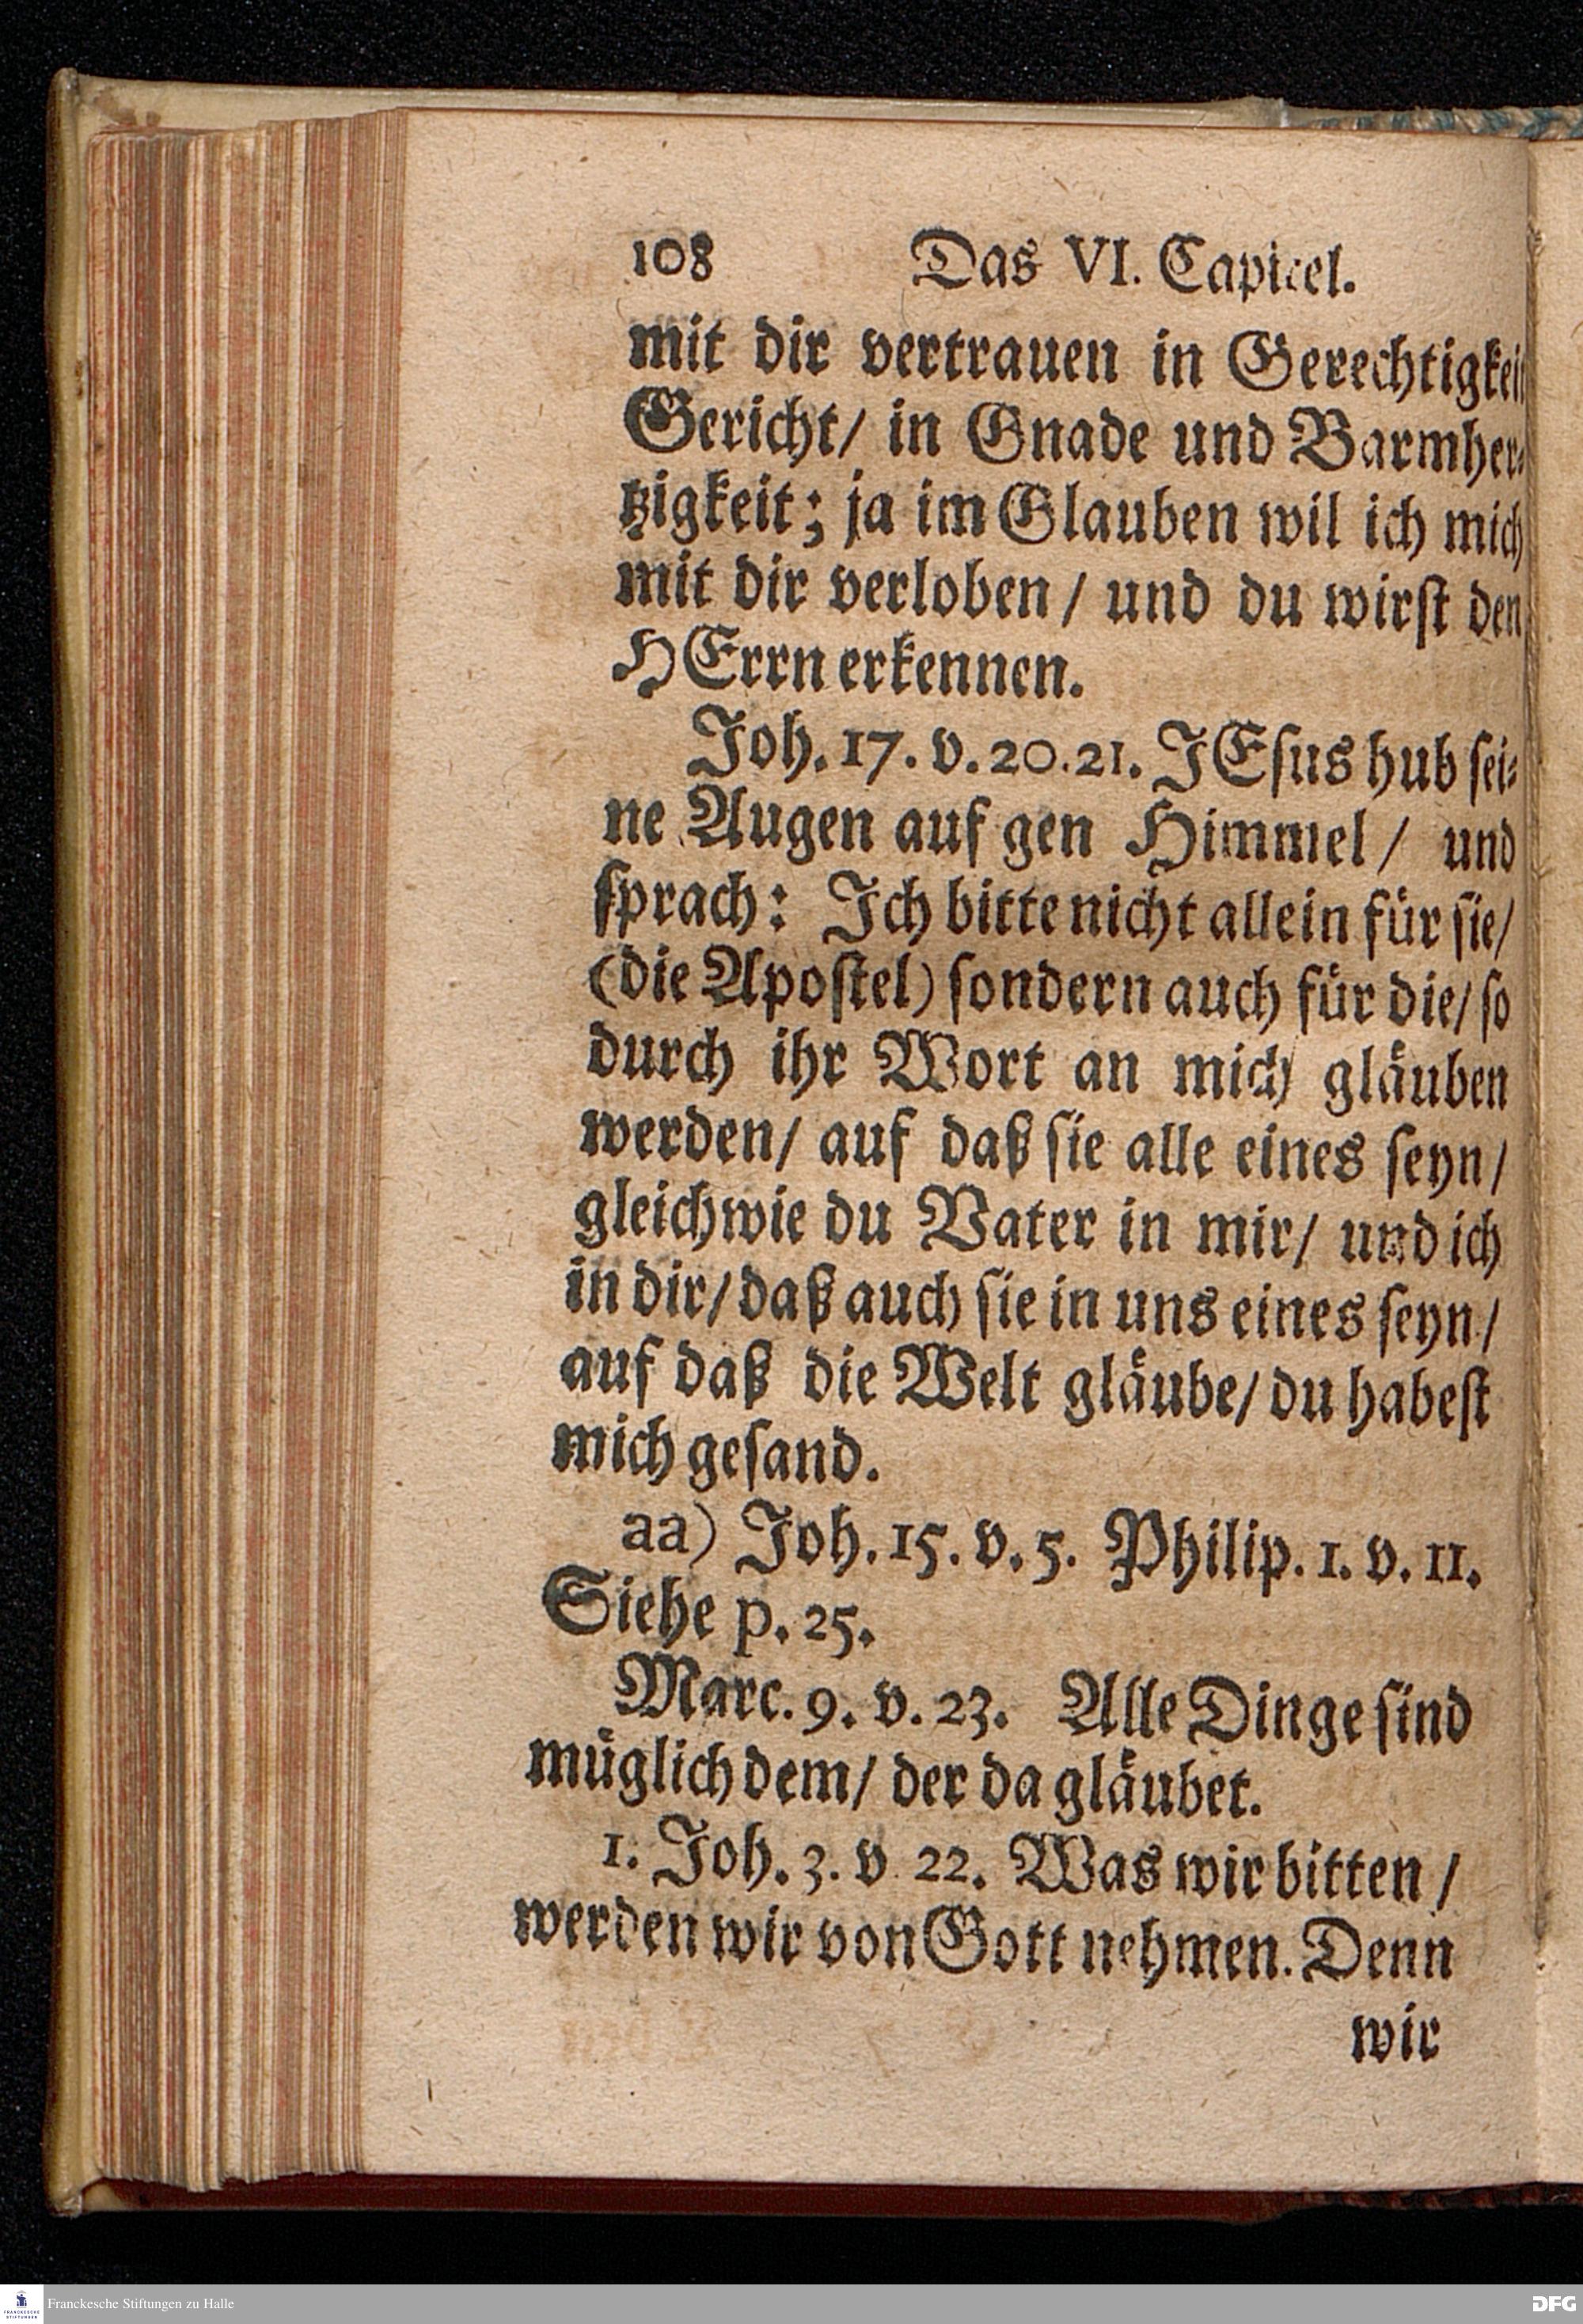 108 Das VI. Capitel.
mit dir vertrauen in Gerechtigkeit
Gericht/ in Gnade und Barmher-
tzigkeit; ja im Glauben wil ich mich
mit dir verloben/ und du wirst den
HErrn erkennen.
Joh. 17. v. 20. 21. JEsus hub sei-
ne Augen auf gen Himmel/ und
sprach: Ich bitte nicht allein für sie/
(die Apostel) sondern auch für die/ so
durch ihr Wort an mich gläuben
werden/ auf daß sie alle eines seyn/
gleichwie du Vater in mir/ und ich
in dir/ daß auch sie in uns eines seyn/
auf daß die Welt gläube/ du habest
mich gesand.
aa) Joh. 15. v. 5. Philip. 1. v. 11.
Siehe p. 25.
Marc. 9. v. 23. Alle Dinge sind
müglich dem/ der da gläubet.
1. Joh. 3. v 22. Was wir bitten/
werden wir von Gott nehmen. Denn
wir
FRANCKESCHE STIFTUNGEN
Franckesche Stiftungen zu Halle
DFG